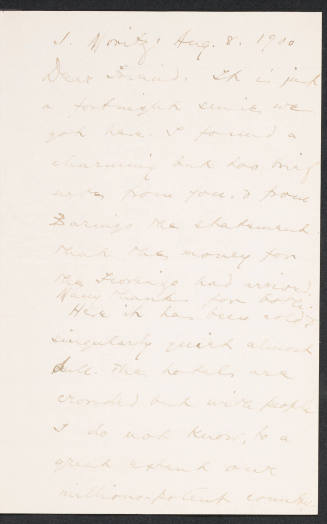 S. Moritz. Aug. 8. 1900
Dear Friend. It is just
a fortnight since we
got here. I found a
charming but too brief
note from you, & from
Barings the statement
that the money for
the had arrived.
Many thanks for both.
Here it has been cold &
singularly quiet almost
dull. The hotels are
crowded but with people
I do not know, to a
great extent our